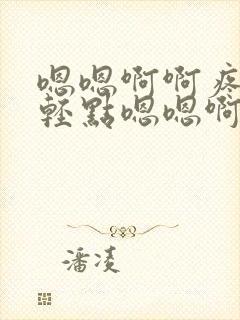 嗯嗯啊啊疼
轻點嗯嗯啊
潘凌